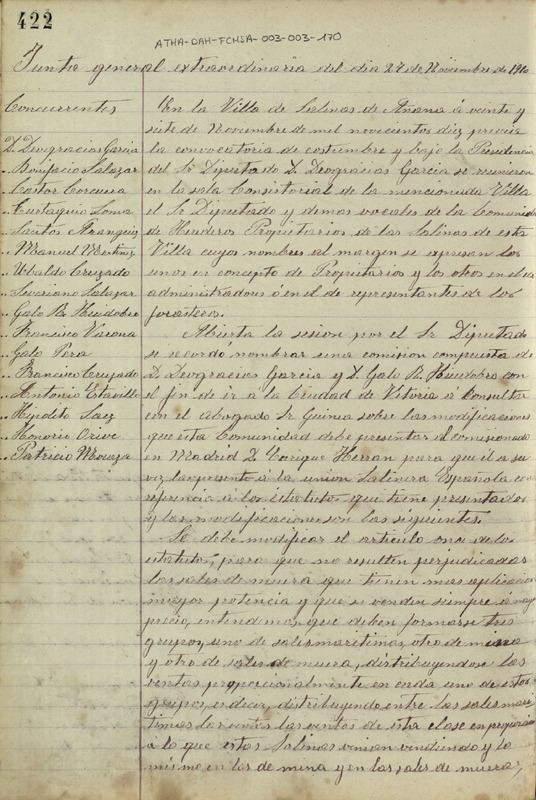 422
ATHA-DAH-FCHSA-003-003-170
Junta general extraordinaria del dia 27 de Noviembre de 1910
Concurrentes
D. Deogracias Garcia
.. Bonifacio Salazar
.. Castor Corcuera
.. Eustaquio Loma
.. Santos Aranguiz
.. Manuel Martinez
.. Ubaldo Cruzado
.. Severiano Salazar
.. Galo Rz. Huidobro
.. Francisco Varona
.. Galo Pera
.. Francisco Cruzado
.. Antonio Estavillo
.. Hipolito Saez
.. Honorio Orive
.. Patricio
En la Villa de Salinas de Añana á veinte y
siete de Noviembre de mil novecientos diez previa
la convocatoria de costumbre y bajo la Presidencia
del Sr Diputado D. Deogracias Garcia se reunieron
en la sala Consistorial de la mencionada Villa
el Sr Diputado y demas vocales de la Comunidad
de Herederos Propietarios de las Salinas de esta
Villa cuyos nombres al margen se espresan los
unos en concepto de Propietarios y los otros en el de
administradores ó en el de representantes de los
forasteros.
Abierta la sesion por el Sr Diputado
se acordó nombrar una comision compuesta de
D. Deogracias Garcia y D. Galo Rz. Huidobro con
el fin de ir á la Ciudad de Vitoria á consultar
con el abogado Sr Guinea sobre las modificaciones
que esta Comunidad debe presentar al comisionado
en Madrid D. Enrique Herran para que él a su
vez las presente á la union Salinera Española con
referencia á los estatutos que tiene presentados
y las modificaciones son las siguientes.
Se debe modificar el articulo once de los
estatutos, para que no resulten perjudicadas
las sales de muera que tienen mas aplicacion
mayor potencia y que se venden siempre á mayor
precio, entendemos, que deben formarse tres
grupos, uno de sales maritimas, otro de mina
y otro de sales de muera, distribuyendose las
ventas proporcionalmente en cada uno de estos
grupos, es decir, distribuyendo entre las sales mari
timas las ventas de esta clase en proporcion
a lo que estas Salinas venian vendiendo y lo
mismo en las de mina y en las sales de muera;